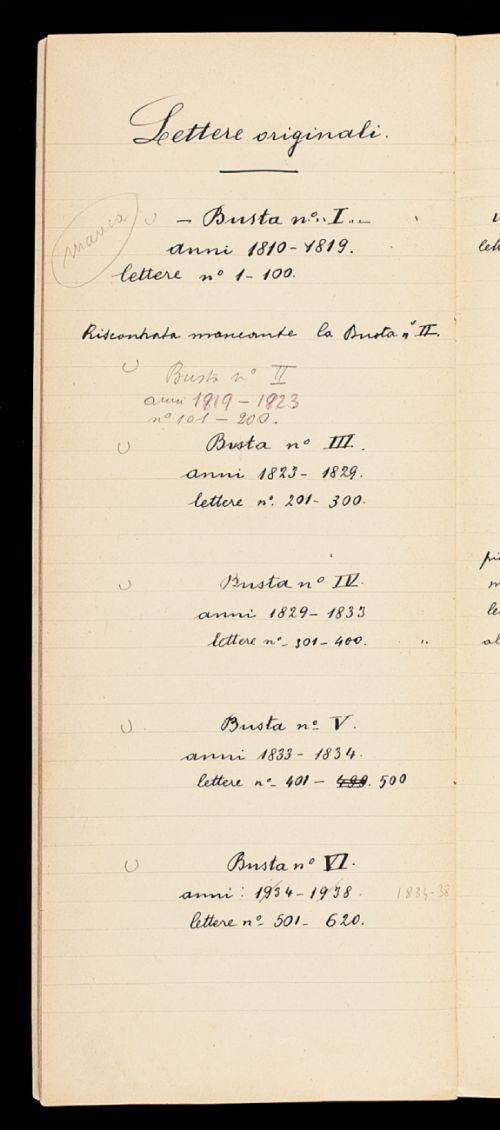 Lettere originali.
manca
- Busta nº I.
anni 1810-1819.
lettere nº 1-100.
Riscontrata mancante la Busta nº II.
Busta nº II
anni 1819-1823
nº 101-200.
Busta nº III.
anni 1823-1829.
lettere nº. 201-300.
Busta nº IV.
anni 1829-1833
lettere nº- 301-400.
Busta nº V.
anni 1833-1834.
lettere nº- 401- 499. 500
Busta nº VI.
anni: 1934-1938. 1834-38
lettere nº- 501- 620.